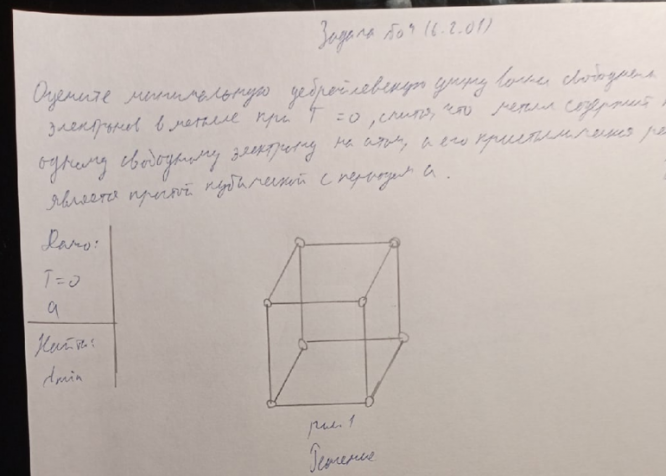 Задача №4 (6.2.01)
Оцените минимальную дебройлевскую длину волны свободных
электронов в металле при T=0, считая, что металл содержит по
одному свободному электрону на атом, а его кристаллическая ре
является простой кубической с периодом a.
Дано:
T=0
a
Найти:
λmin
рис. 1
Решение